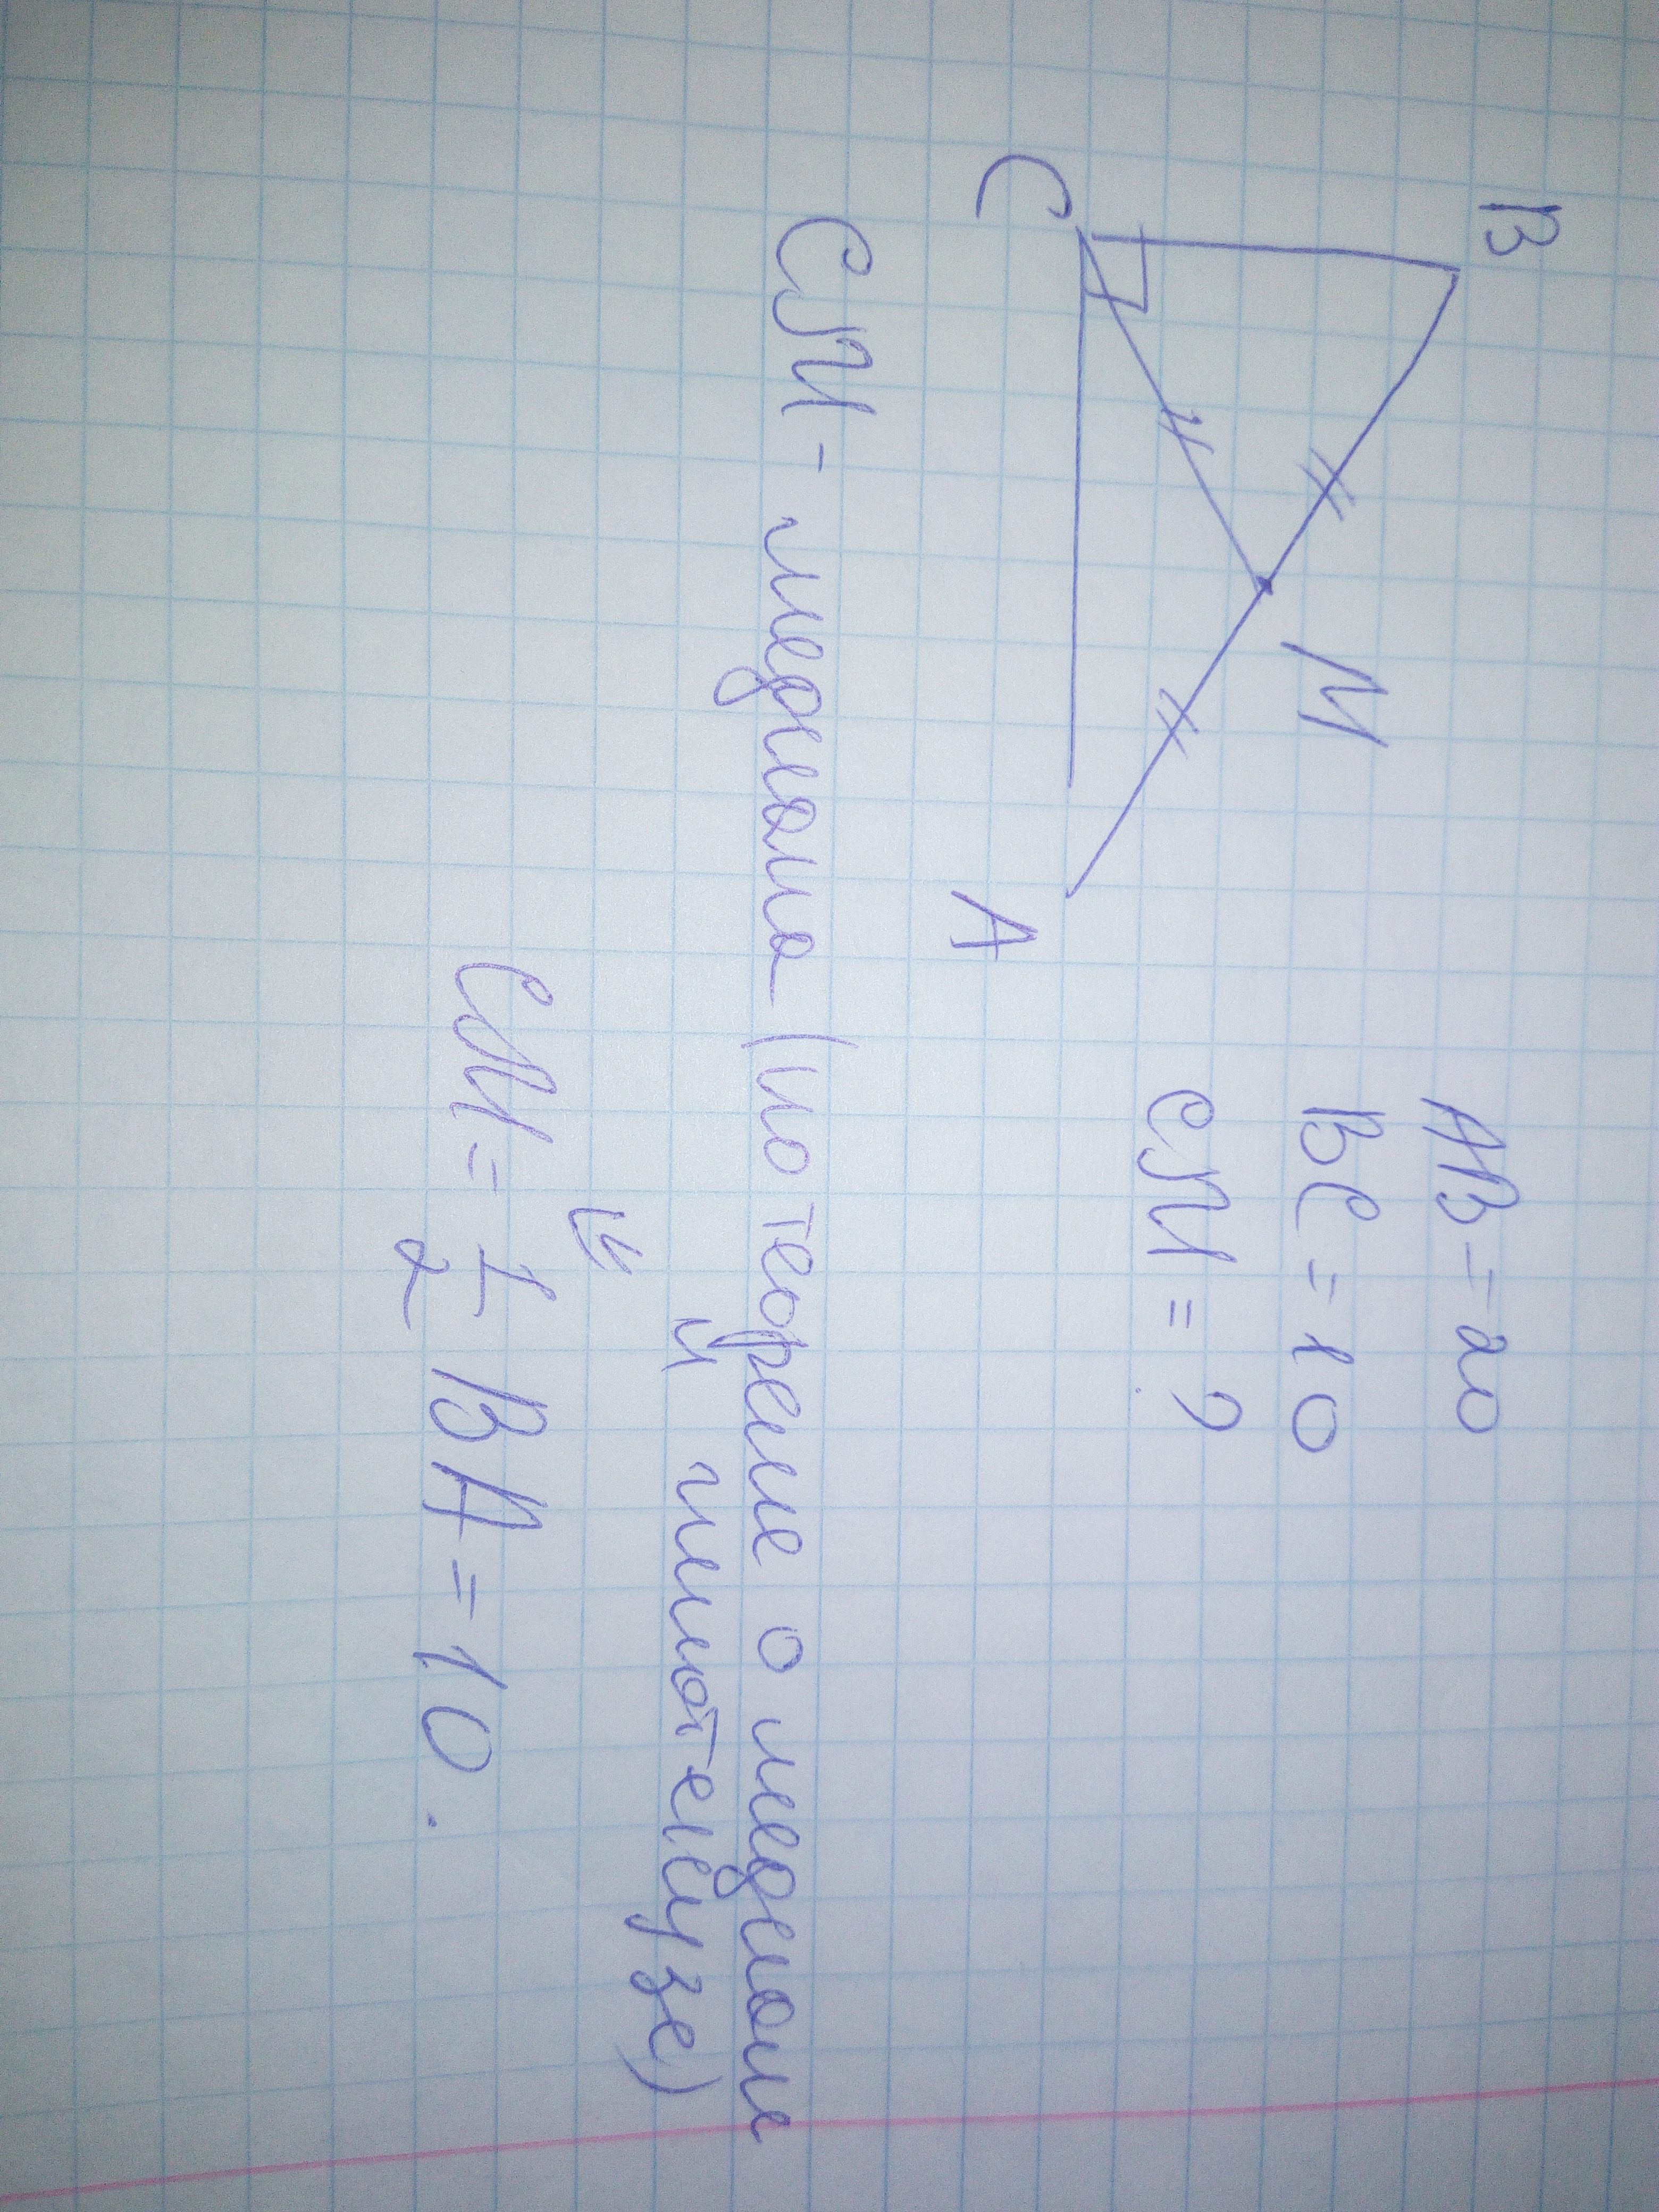 B
M
C
A
AB = 20
BC = 10
CM = ?
CM - медиана (по теореме о медиане
и гипотенузе)
⇓
CM = 1/2 BA = 10.